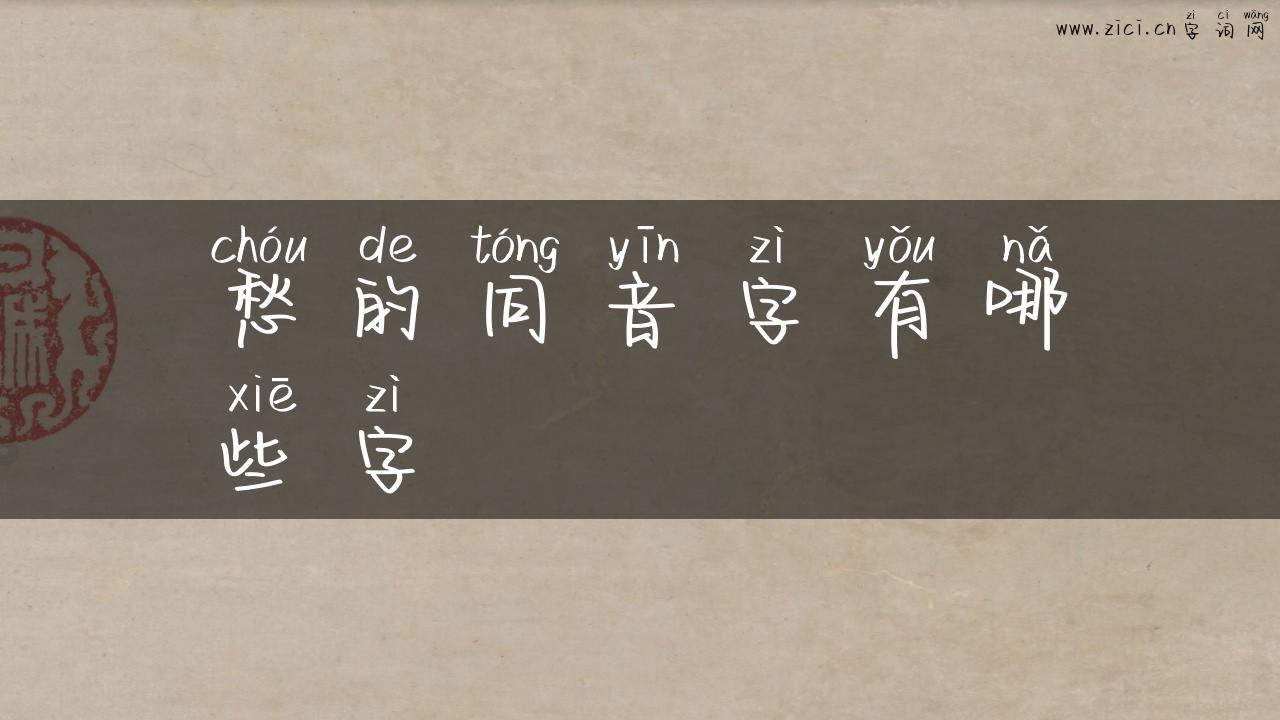 zì cí wǎng
www.zici.cn 字词网
chóu de tóng yīn zì yǒu nǎ
愁的同音字有哪
xiē zì
些字